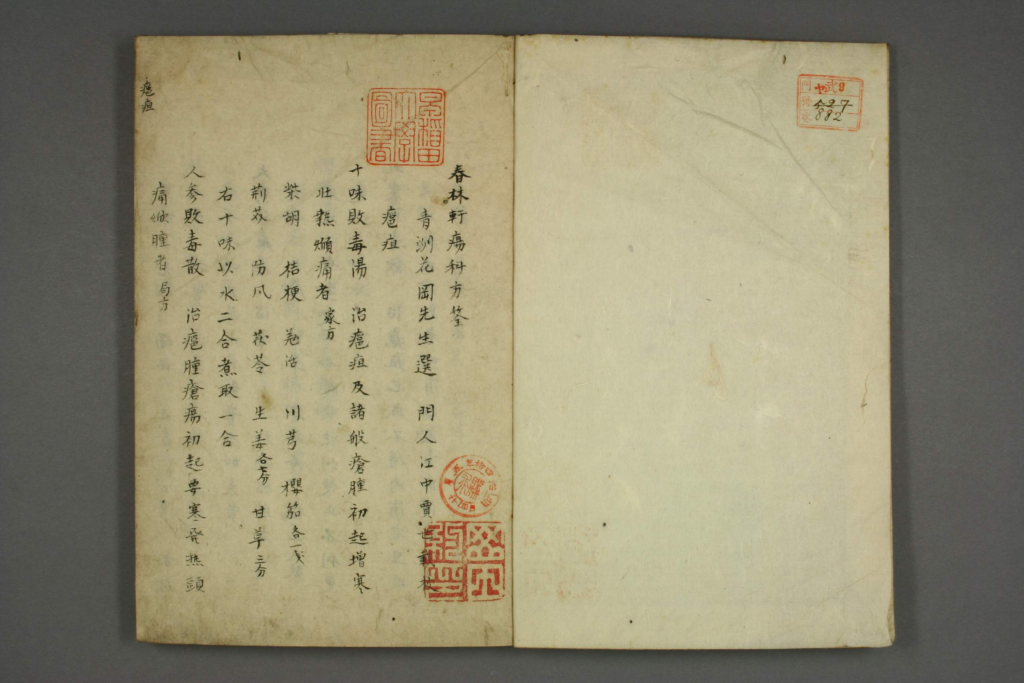 882
早稻田大學圖書
春林軒瘍科方筌
青洲花岡先生選 門人江中賈世
癰疽
十味敗毒湯 治癰疽及諸般瘡腫初起增寒
壯熱焮痛者 家方
柴胡 桔梗 羌活 川芎 櫻筎各一戔
荊芥 防風 茯苓 生姜各七分 甘草三分
右十味以水二合煮取一合
人参敗毒散 治癰腫瘡瘍初起要寒発熱頭
痛焮腫者 局方
癰疽